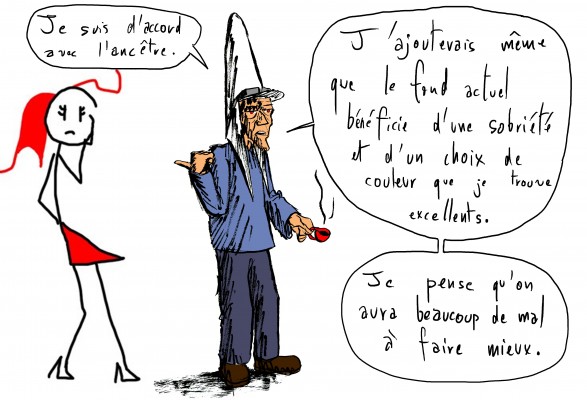 Je suis d'accord
avec l'ancêtre.
J'ajouterais même
que le fond actuel
bénéficie d'une sobriété
et d'un choix de
couleur que je trouve
excellents.
Je pense qu'on
aura beaucoup de mal
à faire mieux.